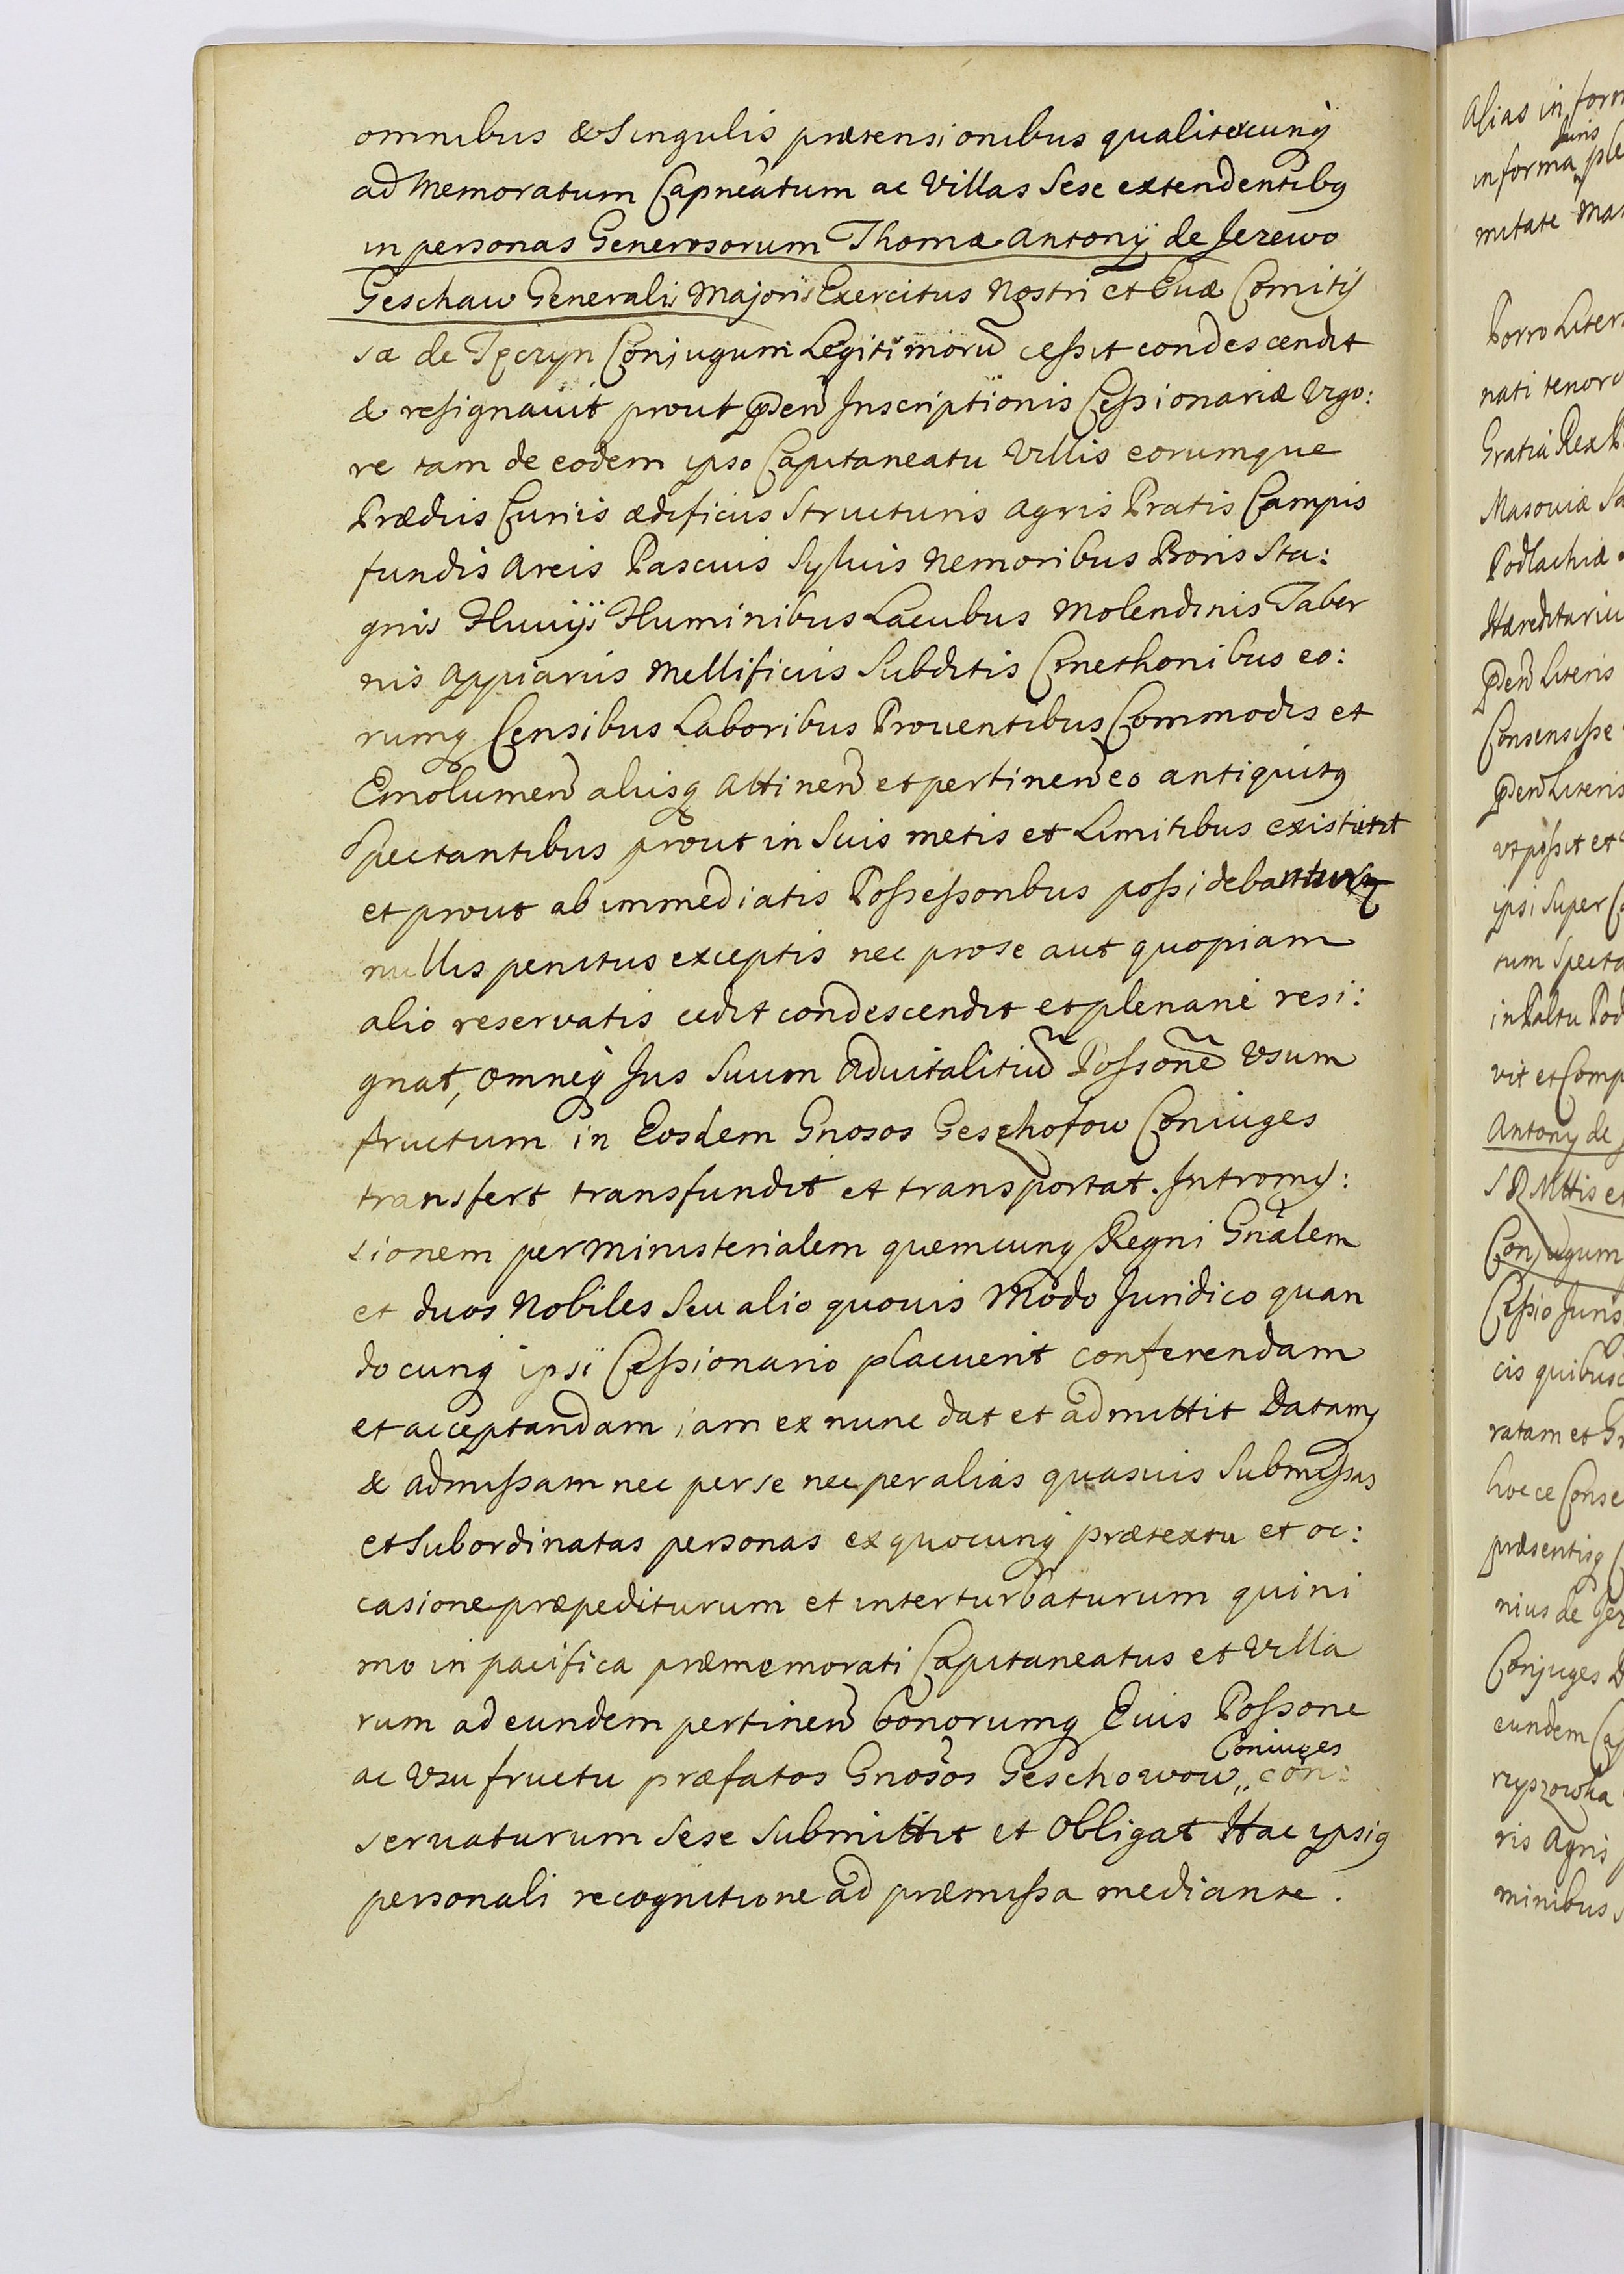 omnibus & Singulis prætensionibus qualitercunq
ad Memoratum Capneatum ac Villas Sese extendentibq
in personas Generosorum Thomæ Antonÿ de Jezewo
Geschaw Generalis Majoris Exercitus Nostri et Evæ Comitis
sæ de Tęczyn Conjugum Legitimorũ cessit condescendit
& resignavit prout pñden Inscriptionis Cessionariæ Vigo:
re tam de eodem ipso Capitaneatu Villis eorumque
Prædiis Curiis ædificiis Structuris Agris Pratis Campis
fundis Areis Pascuis Sylvis Nemoribus Boris Sta:
gnis Fluuijs Fluminibus Lacubus Molendinis Taber
nis Appiariis Mellificiis Subditis Cmethonibus eo:
rumq Censibus Laboribus Prouentibus Commodis et
Emolumen aliisq Attinen et pertinen eo antiquitq
Spectantibus prout in Suis metis et Limitibus existit
et prout ab immediatis Possessoribus possidebantur
nullis penitus exceptis nec pro se aut quopiam
alio reservatis cedit condescendit et plenarie resi:
gnat, omneq Jus Suum Aduitalitiũ Possone Vsum
fructum in Eosdem Gnosos Geschofow Coniuges
transfert transfundit et transportat. Intromis:
sionem per Ministerialem quemcunq Regni Gnalem
et duos Nobiles Seu alio quouis Modo Juridico quan
do cunq ipsi Cessionario placuerit conferendam
et acceptandam iam ex nunc dat et admittit Datamq
& admissam nec per se nec per alias quasuis Submissas
et Subordinatas personas ex quocunq prætextu et oc:
casione præpediturum et interturbaturum quini
mo in pacifica præmemorati Capitaneatus et Villa
rum ad eundem pertinen bonorumq Eius Possone
ac Vsu fructu præfatos Gnosos Geschowow Coniuges con:
servaturum Sese Submittit et Obligat Hac ipsiq
personali recognitione ad præmissa mediante.
Alias in form
in forma Juris ple
mitate Ma
Porro Liter
nati tenor
Gratia Rex P
Masoviæ Sa
Podlachiæ
Hæreditariu
pñden Literis
Consensisse
pñden Literis
vt possit et
ipsi Super Ca
tum Specta
in Paltu Pod
vit et Comp
Antony de
S R Mttis et
Conjugum
Cessio Juris
cis quibusc
ratam et Gr
hocce Conse
præsentisq
nius de Jez
Conjuges D
eundem Ca
rzyszowka
ris Agris
minibus S